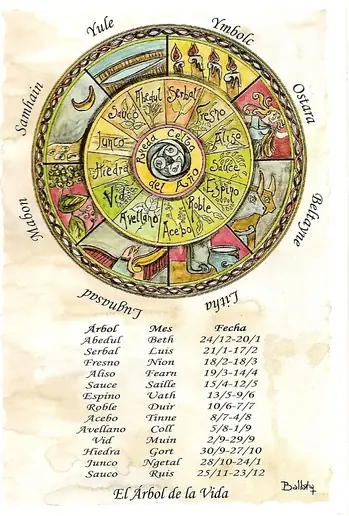 Yule
Ymbolc
Ostara
Beltayne
Litha
Lugnasad
Mabon
Samhain
Rueda Celta
del Año
Abedul
Serbal
Fresno
Aliso
Sauce
Espino
Roble
Acebo
Avellano
Vid
Hiedra
Junco
Sauco
Árbol Mes Fecha
Abedul Beth 24/12-20/1
Serbal Luis 21/1-17/2
Fresno Nion 18/2-18/3
Aliso Fearn 19/3-14/4
Sauce Saille 15/4-12/5
Espino Uath 13/5-9/6
Roble Duir 10/6-7/7
Acebo Tinne 8/7-4/8
Avellano Coll 5/8-1/9
Vid Muin 2/9-29/9
Hiedra Gort 30/9-27/10
Junco Ngetal 28/10-24/1
Sauco Ruis 25/11-23/12
El Árbol de la Vida